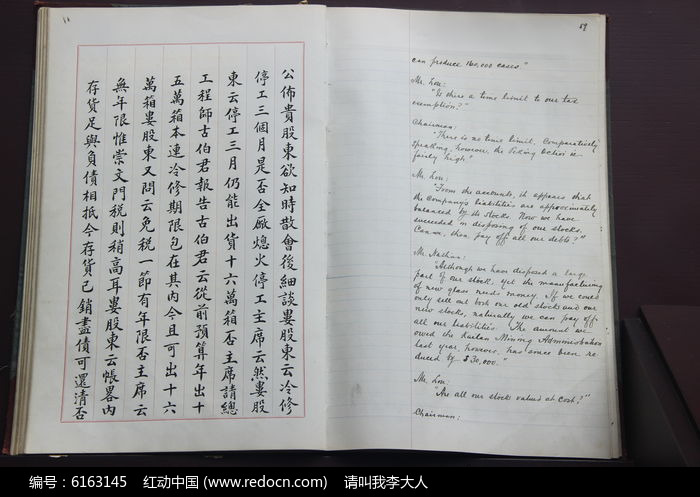 公佈貴股東欲知時散會後細談婁股東云冷修
停工三個月是否全廠熄火停工主席云然婁股
東云停工三月仍能出貨十六萬箱否主席請總
工程師古伯君報告古伯君云從前預算年出十
五萬箱本連冷修期限包在其內今且可出十六
萬箱婁股東又問云免税一節有年限否主席云
無年限惟崇文門税則稍高耳婁股東云帳畧內
存貨足與負債相抵今存貨已銷盡債可還清否
59
can produce 160,000 cases."
Mr. Lou:
"Is there a time limit to our tax
exemption?"
Chairman:
"There is no time limit. Comparatively
speaking, however, the Peking Octroi is
fairly high."
Mr. Lou:
"From the accounts, it appears that
the Company's liabilities are approximately
balanced by its stocks. Now we have
succeeded in disposing of our stocks.
Can we, then, pay off all our debts?"
Mr. Nathan:
"Although we have disposed a large
part of our stock, yet the manufacturing
of new glass needs money. If we could
only sell out both our old stock and our
new stocks, naturally we can pay off
all our liabilities. The amount we
owed the Kailan Mining Administration
last year, however, has since been re-
duced by $30,000."
Mr. Lou:
"Are all our stocks valued at cost?"
Chairman:
编号：6163145 红动中国 (www.redocn.com) 请叫我李大人